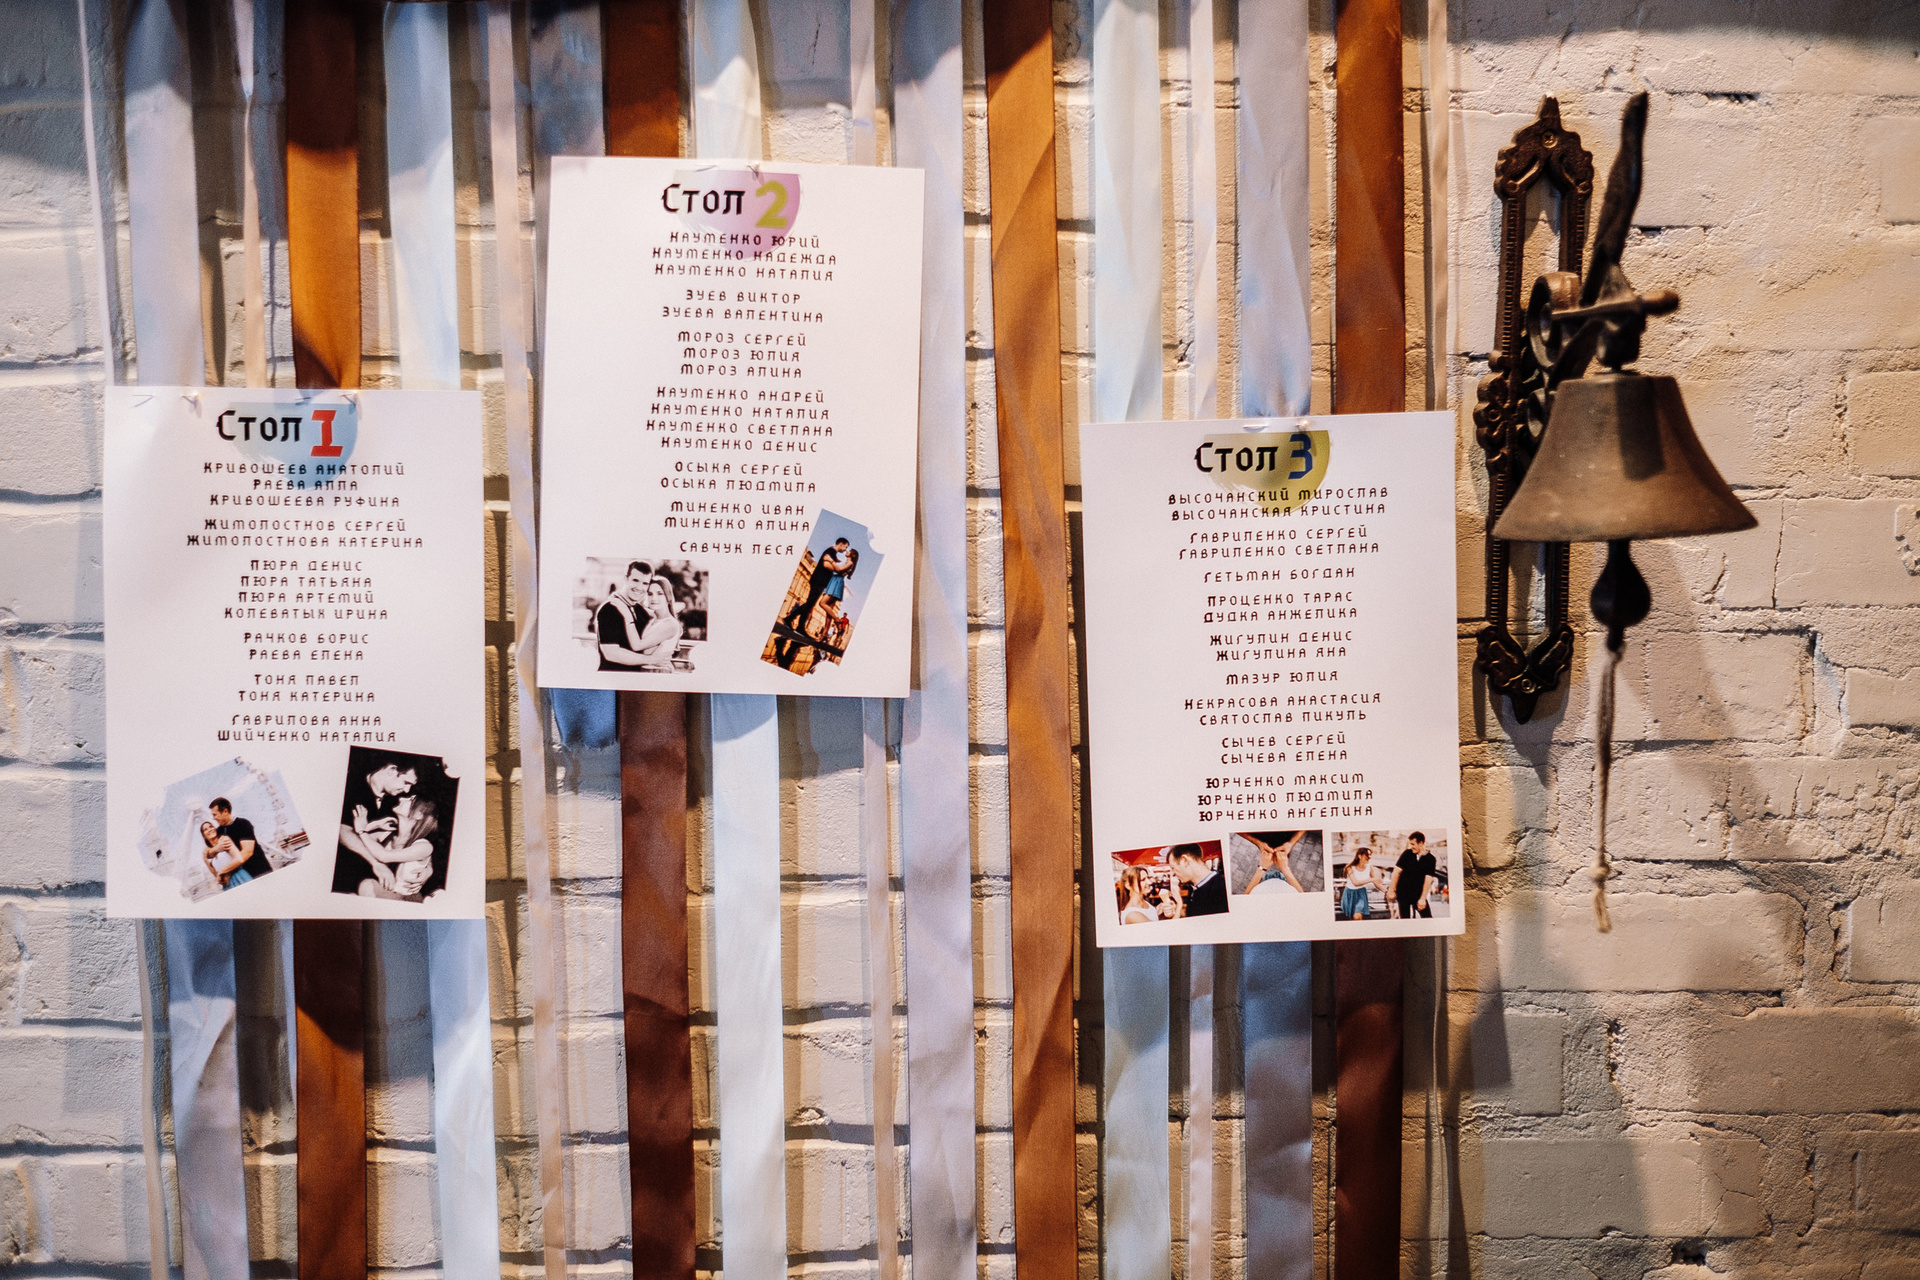 Стол 1
Кривошеев Анатолий
Раева Алла
Кривошеева Руфина
Жимолостнов Сергей
Жимолостнова Катерина
Пюра Денис
Пюра Татьяна
Пюра Артемий
Колеватых Ирина
Рачков Борис
Раева Елена
Тоня Павел
Тоня Катерина
Гаврилова Анна
Шийченко Наталия
Стол 2
Науменко Юрий
Науменко Надежда
Науменко Наталия
Зуев Виктор
Зуева Валентина
Мороз Сергей
Мороз Юлия
Мороз Алина
Науменко Андрей
Науменко Наталия
Науменко Светлана
Науменко Денис
Осыка Сергей
Осыка Людмила
Миненко Иван
Миненко Алина
Савчук Леся
Стол 3
Высочанский Мирослав
Высочанская Кристина
Гавриленко Сергей
Гавриленко Светлана
Гетьман Богдан
Проценко Тарас
Дудка Анжелика
Жигулин Денис
Жигулина Яна
Мазур Юлия
Некрасова Анастасия
Святослав Пикуль
Сычев Сергей
Сычева Елена
Юрченко Максим
Юрченко Людмила
Юрченко Ангелина